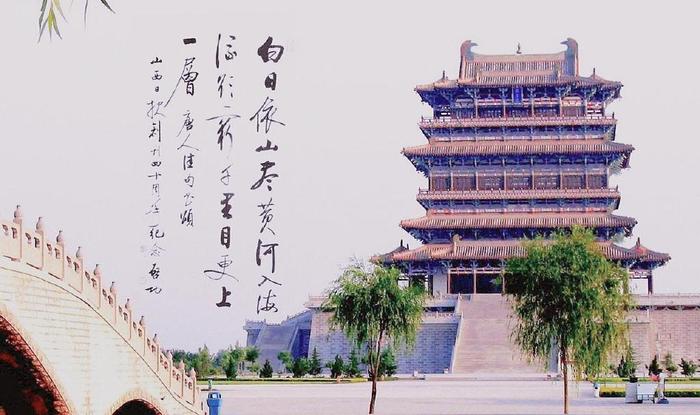 白日依山尽黄河入海
流欲穷千里目更上
一層 唐人佳句书颂
山西日报创刊四十周年纪念 启功